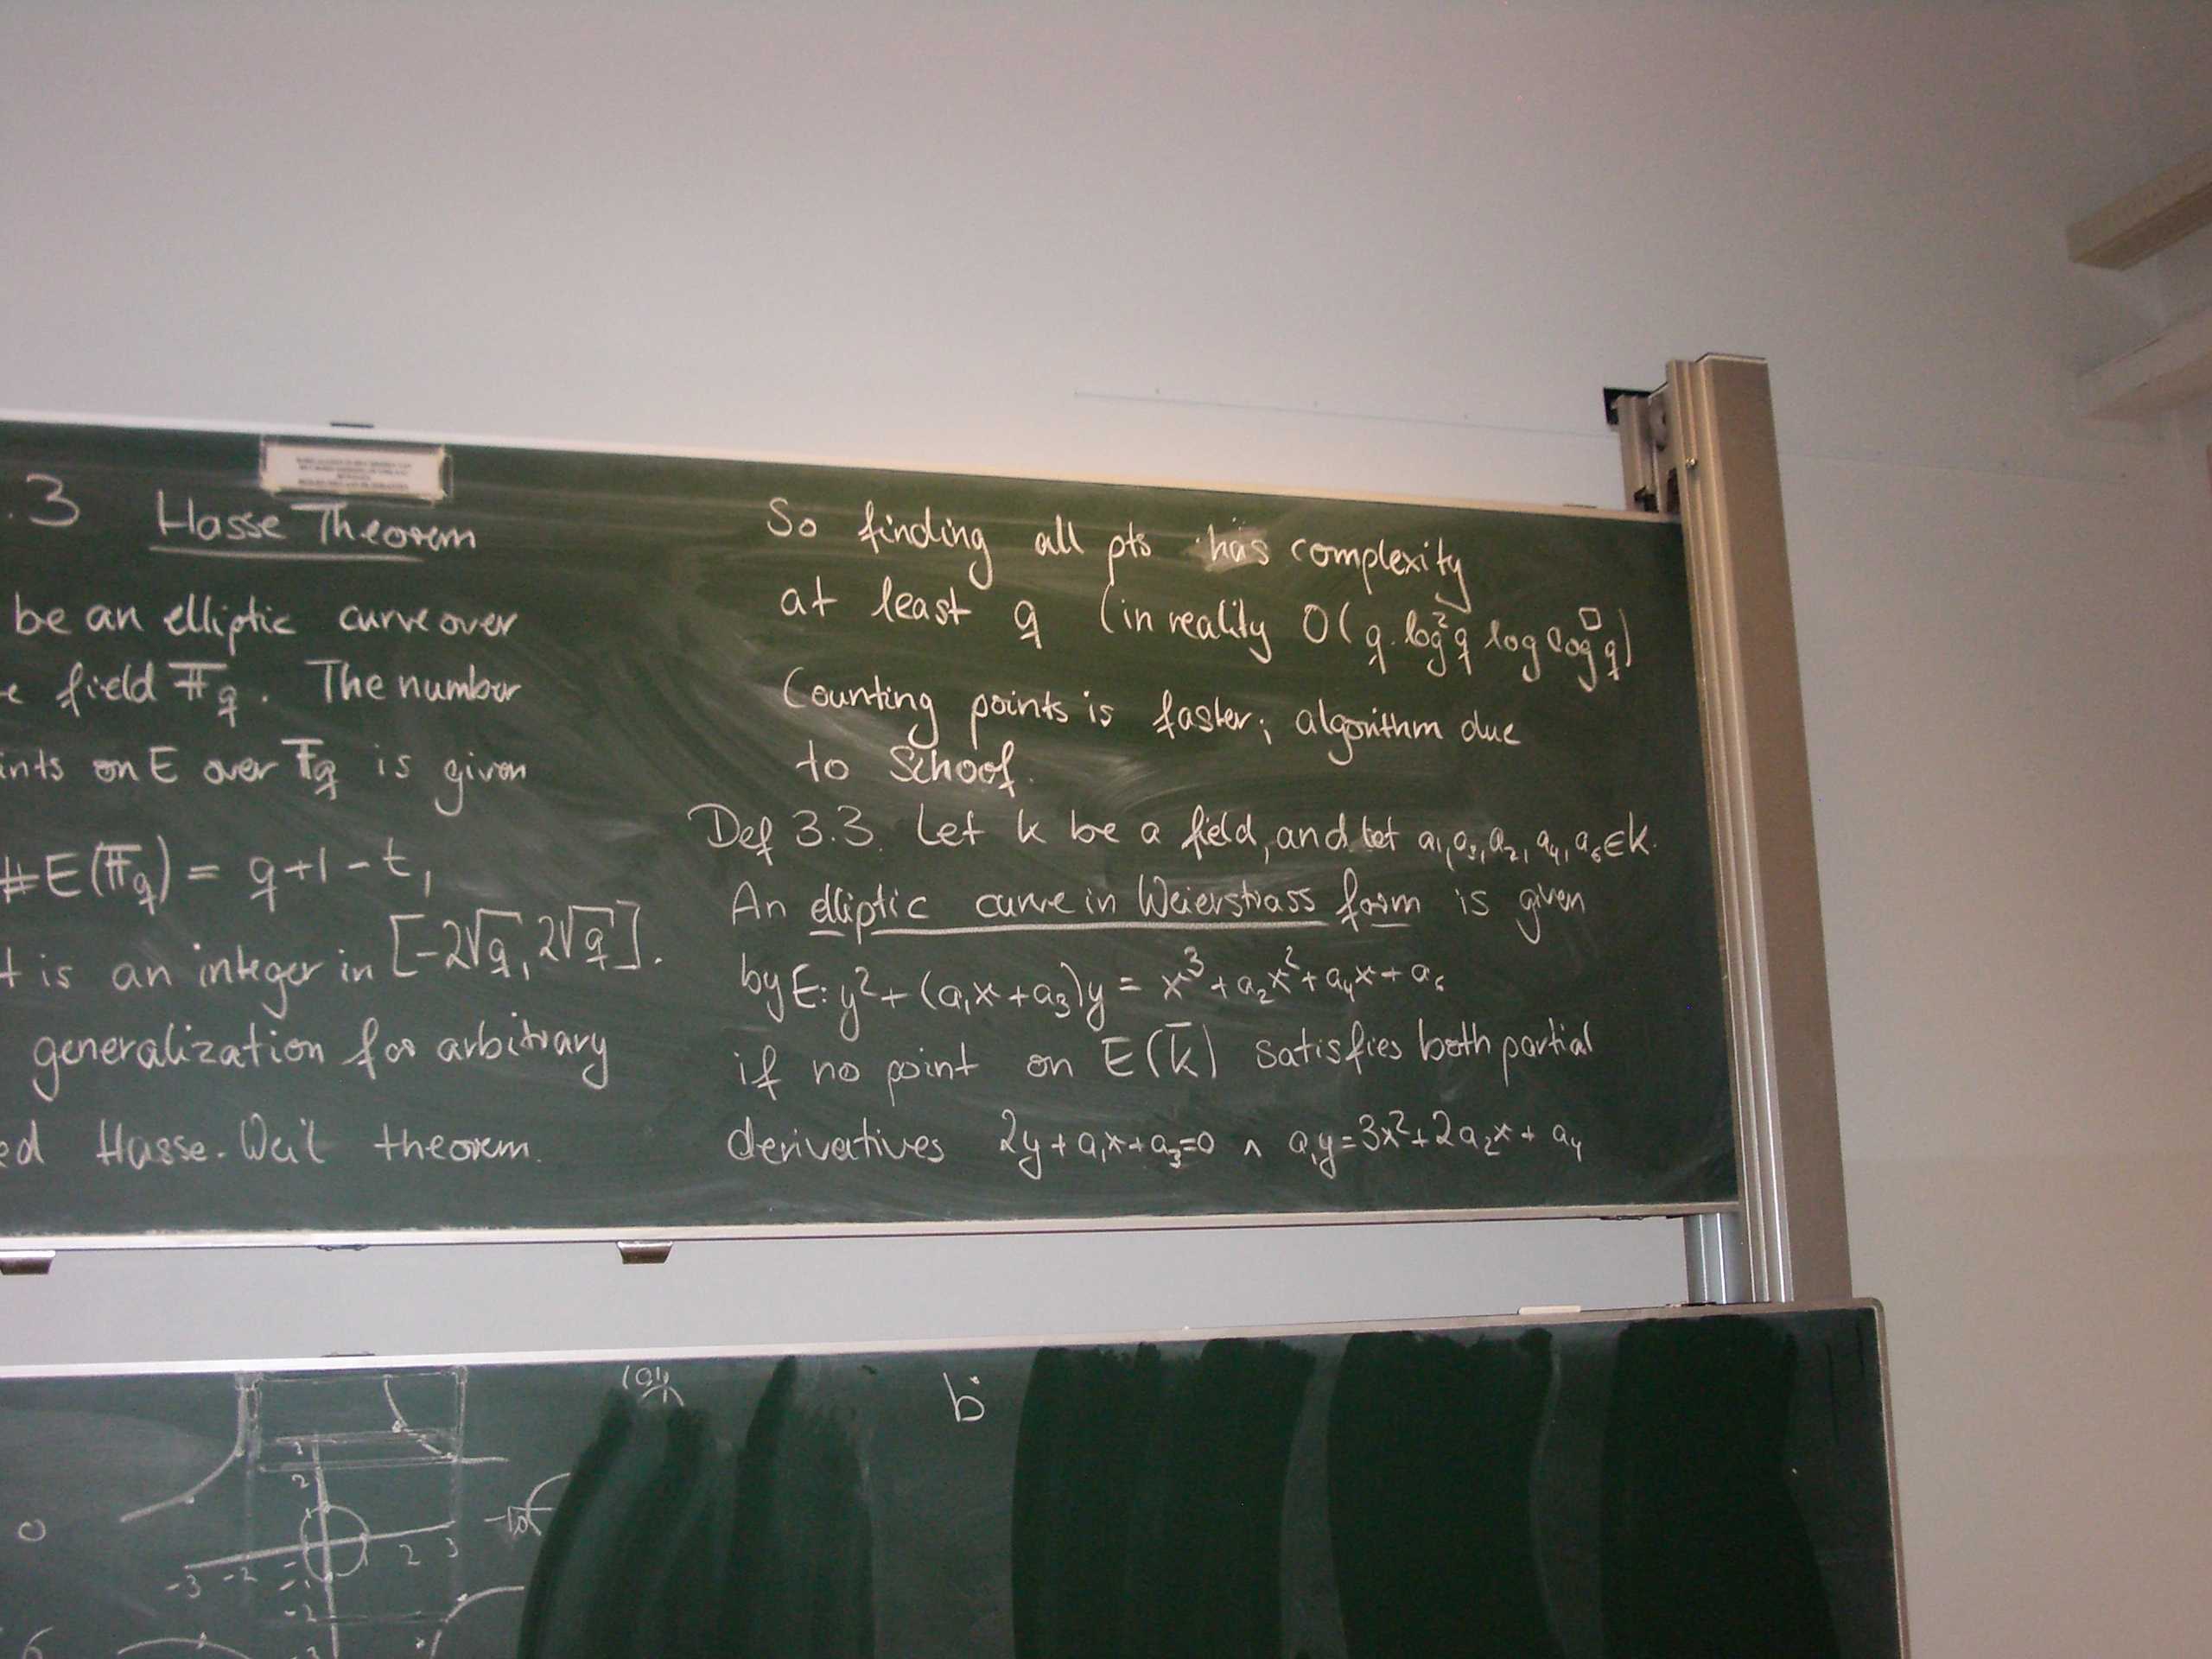 .3 Hasse Theorem
be an elliptic curve over
e field 𝔽q. The number
ints on E over 𝔽q is given
#E(𝔽q) = q+1-t,
t is an integer in [-2√q, 2√q].
generalization for arbitrary
ed Hasse-Weil theorem.
So finding all pts has complexity
at least q (in reality O(q·log²q log log^□ q)
Counting points is faster; algorithm due
to Schoof.
Def 3.3. Let k be a field, and let a₁, a₃, a₂, a₄, a₆ ∈ k.
An elliptic curve in Weierstrass form is given
by E: y² + (a₁x + a₃)y = x³ + a₂x² + a₄x + a₆
if no point on E(k̄) satisfies both partial
derivatives 2y + a₁x + a₃ = 0 ∧ a₁y = 3x² + 2a₂x + a₄
b
3
2
-3 -2 2 3
-1
-2
-3
0
6